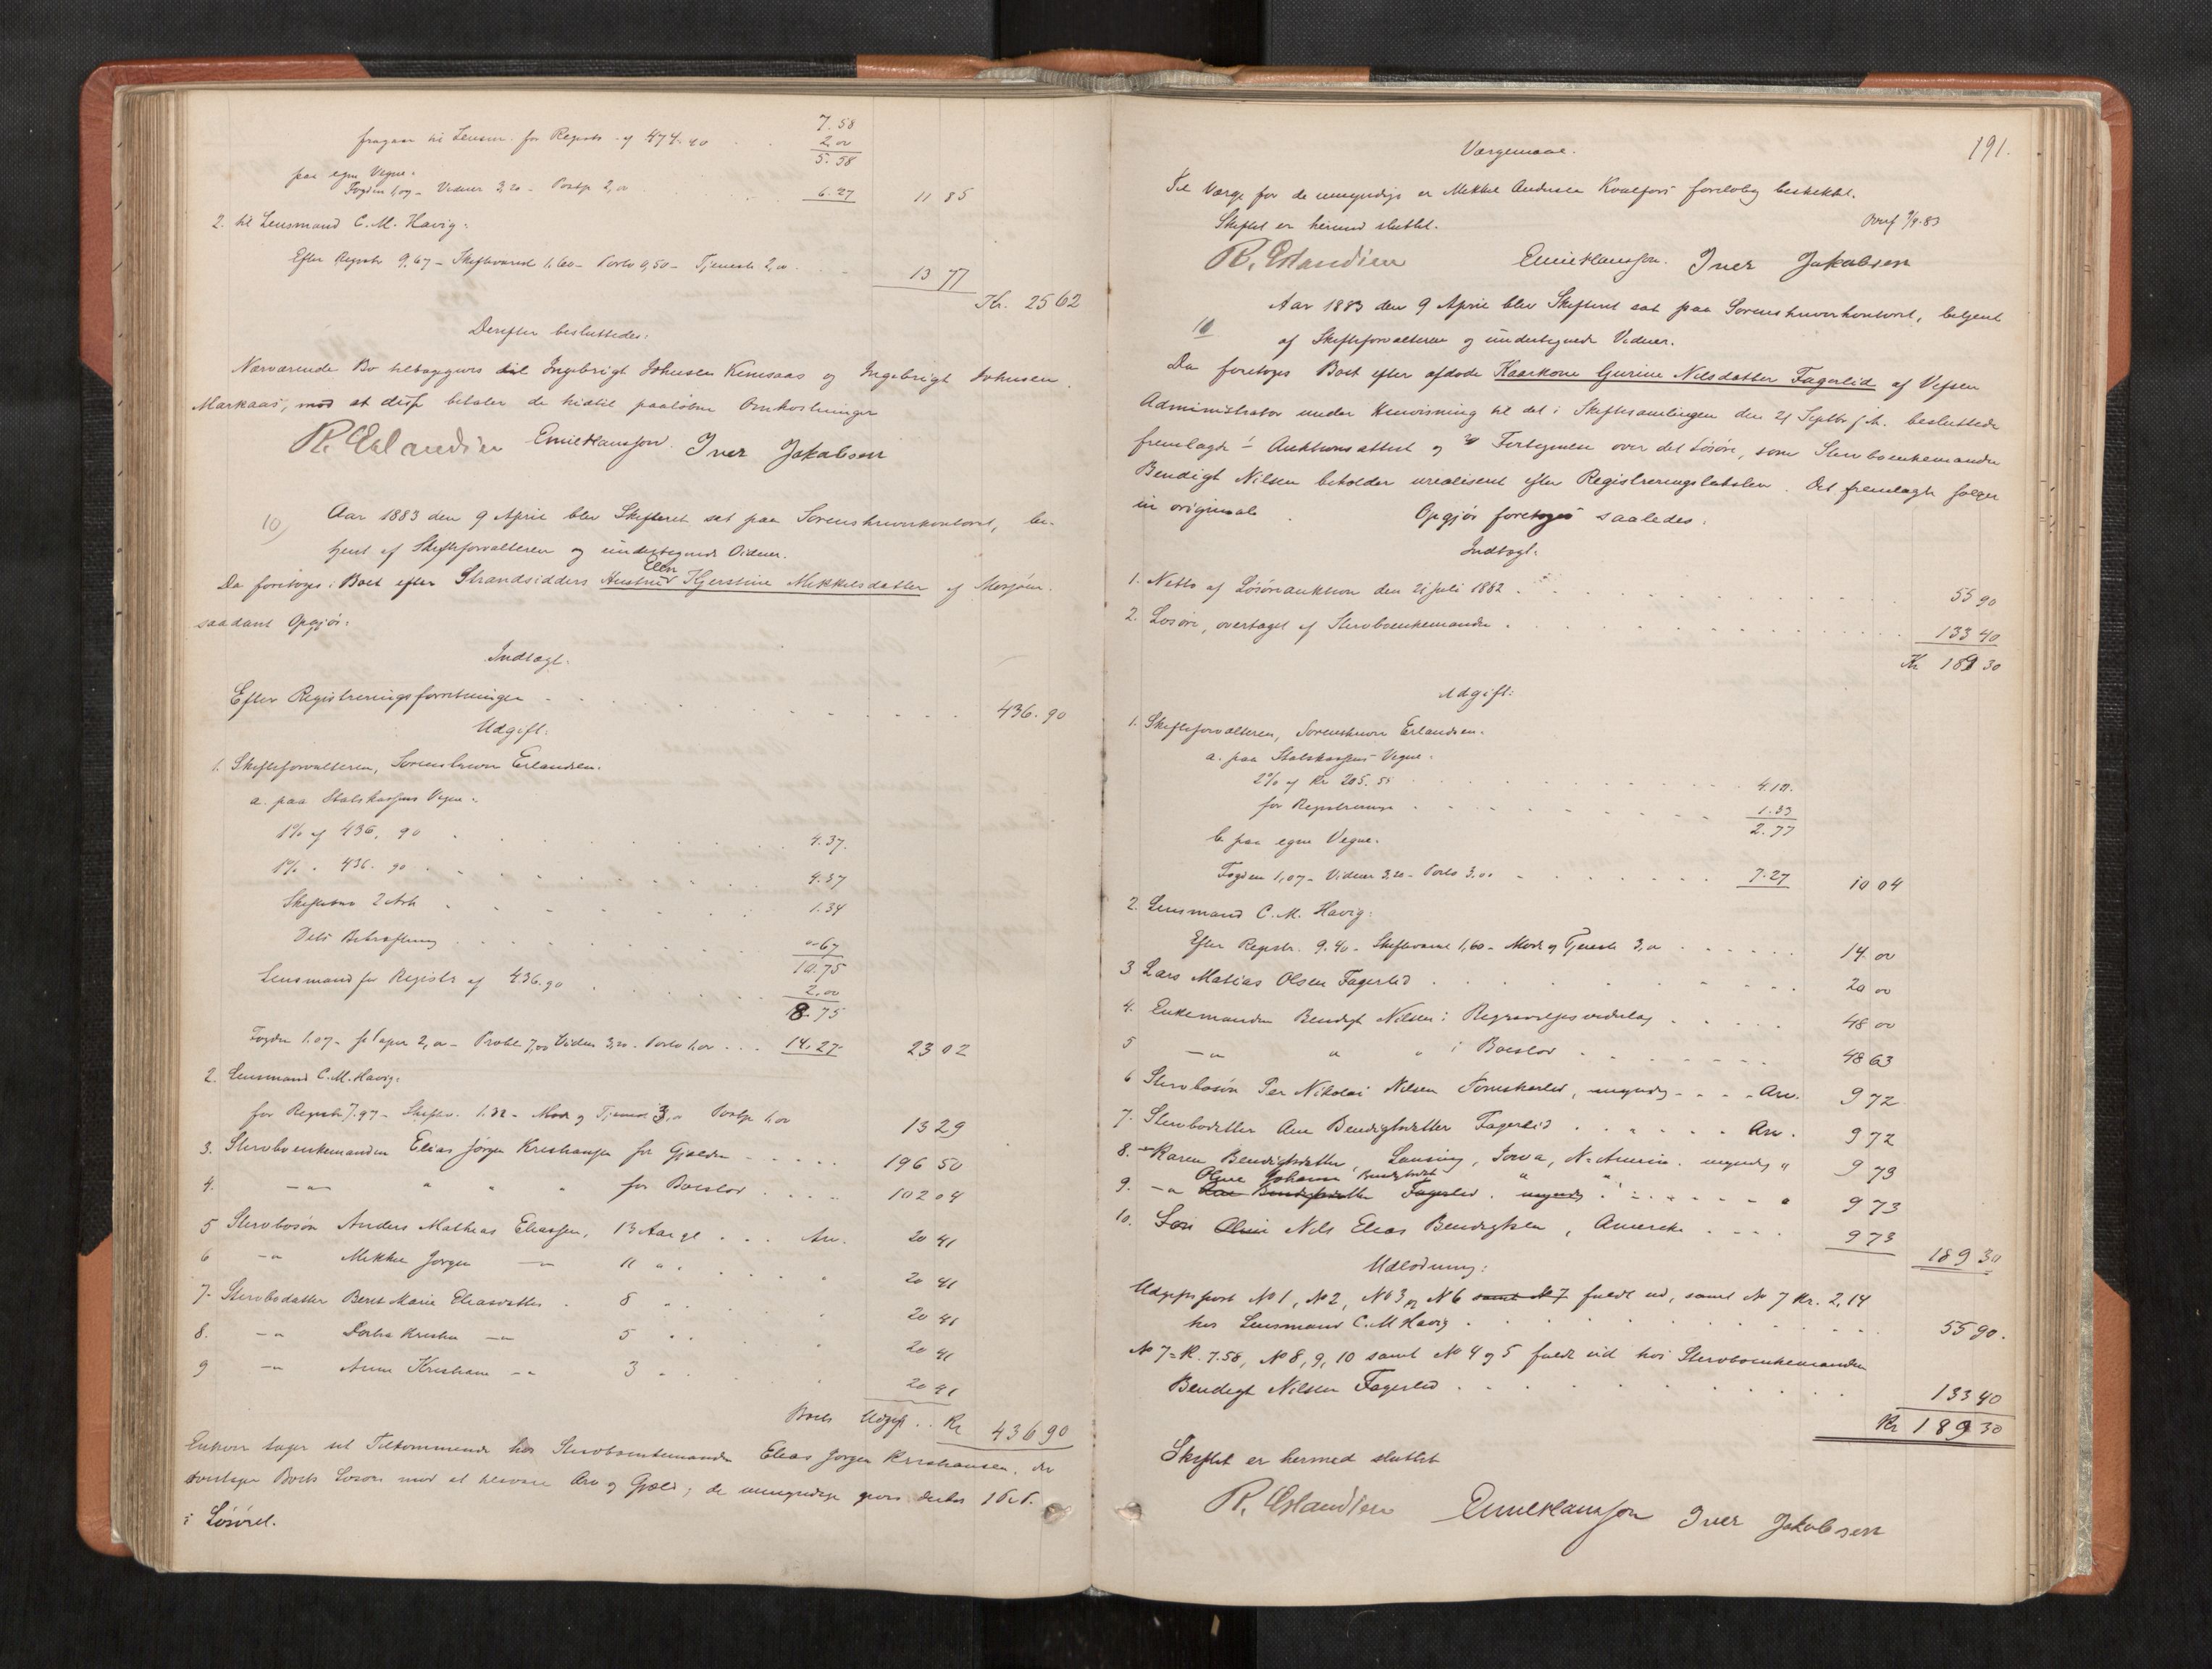 7.58
fragaar til Lensm. for Registr. af 474.40 . . 2,00
5.58
paa egne Vegne.
Fogden 1,07 – Vidner 3,20 – Postp 2,00 6.27 11 85
2. til Lensmand C. M. Havig:
Efter Registr. 9,67 – Skiftevarsel 1,60 – Porto 0,50 – Tjeneste 2,00 . . 13 77
Kr. 25 62
Derefter besluttedes:
Nærværende Bo tilbagegives til Ingebrigt Johnsen Kemsaas og Ingebrigt Johnsen
Markaas, mod at disse betaler de hidtil paaløbne Omkostninger
R. Erlandsen Emil Hansson. Iver Jakobsen
10) Aar 1883 den 9 April blev Skifteret sat paa Sorenskriverkontoret, be-
tjent af Skifteforvalteren og undertegnede Vidner.
Da foretoges i Boet efter Strandsidders Hustru Ellen Kjerstine Mikkelsdatter af Mosjøen
saadant Opgjør:
Indtægt.
Efter Registreringsforretningen . . . 436.90
Udgift:
1. Skifteforvalteren, Sorenskriver Erlandsen.
a. paa Statskassens Vegne.
1% af 436,90 . . . 4.37.
1% . 436.90 . . . 4.37
Skiftebrev 2 Ark . . . 1.34
Dets Bekræftning . . . 0.67
10.75
Lensmand for Registr af 436.90 . . . 2,00
8.75
Fogden 1.07 – 2,00 – Protk 7,00 Vidner 3,20 – Porto 1,00 . . . 14.27 23 02
2. Lensmand C. M. Havig:
for Registr 7.97 – Skiftev. 1.32 – Mode og Tjeneste 3,00 Postp 1,00 13 29
3. Stervboenkemanden Elias Jørgen Kristiansen for Gjælden . . . 196 50
4. — " — " " " for Boeslod . . . 102 04
5 Stervbosøn Anders Mathias Eliassen, 13 Aar gl . . . Arv. 20 41
6 — " Mikkel Jørgen — " 11 " . . " 20 41
7. Stervbodatter Beret Marie Eliasdatter . 8 " . . " 20 41
8. — " Dorthea Kristine — " 5 " . . " 20 41
9 — " Anne Kristiane — " 3 " . . " 20 41
Boets Udgift . . Kr 436 90
Enhver tager sit Tilkommende hos Stervboenkemanden Elias Jørgen Kristiansen, der
overtager Boets Løsøre mod at tilsvare Arv og Gjæld; de umyndige gives derfor 1 Pr. P.
i Løsøret.
191.
Værgemaal.
Til Værge for de umyndige er Mikkel Andersen Kvalfors foreløbig beskikket.
9/4.83
Skiftet er hermed sluttet.
R. Erlandsen Emil Hansson. Iver Jakobsen
Aar 1883 den 9 April blev Skifteret sat paa Sorenskriverkontoret, betjent
10 af Skifteforvalteren og undertegnede Vidner.
Da foretoges Boet efter afdøde Kaarkone Gurine Nilsdatter Fagerlid af Vefsen
Administrator under Henvisning til det i Skiftesamlingen den 21 Septbr f.A. besluttede
fremlagde Auktionsattest og Fortegnelse over det Løsøre, som Stervboenkemanden
Bendigt Nilsen beholder urealiseret efter Registreringstaksten. Det fremlagte følger
in originale. Opgjør foretoges saaledes:
Indtægt.
1. Netto af Løsøreauktion den 21 Juli 1882 . . . 55 90
2. Løsøre, overtaget af Stervboenkemanden . . . 133 40
Kr 189 30
Udgift:
1. Skifteforvalteren, Sorenskriver Erlandsen.
a. paa Statskassens Vegne.
2% af Kr 205.55 . . . 4.10.
for Registrering . . . 1.33
2.77
b. paa egne Vegne.
Fogden 1,07 – Vidner 3,20 – Porto 3,00 . . . 7.27 10 04
2. Lensmand C. M. Havig:
Efter Registr. 9.40 – Skiftevarsel 1,60 – Mode og Tjeneste 3,00 . . . 14 00
3. Lars Matias Olsen Fagerlid . . . 20 00
4. Enkemanden Bendigt Nilsen i Begravelsesvederlag . . . 48 00
5 — " " " i Boeslod . . . 48 63
6 Stervbosøn Per Nikolai Nilsen, myndig . . . Arv. 9 72
7. Stervbodatter Ane Bendigtsdatter Fagerlid . . . Arv. 9 72
8. — " Karen Bendigtsdatter, Lansing, Iowa, N. Amerika. myndig " 9 73
Oline Johanna Bendigtsdt " "
9. — " Ane Bendigtsdatter Fagerlid. myndig . . . " 9 73
10. Søn Nils Elias Bendigtsen, Amerika . . . 9 73
189 30
Udlodning:
Udgiftspost No 1, No 2, No 3 og No 6 samt No 7 fuldt ud, samt No 7 Kr. 2,14
hos Lensmand C. M Havig . . . 55 90.
No 7 = K. 7.58, No 8, 9, 10 samt No 4 og 5 fuldt ud hos Stervboenkemanden
Bendigt Nilsen Fagerlid . . . 133 40
Kr 189 30
Skiftet er hermed sluttet
R. Erlandsen Emil Hansson Iver Jakobsen